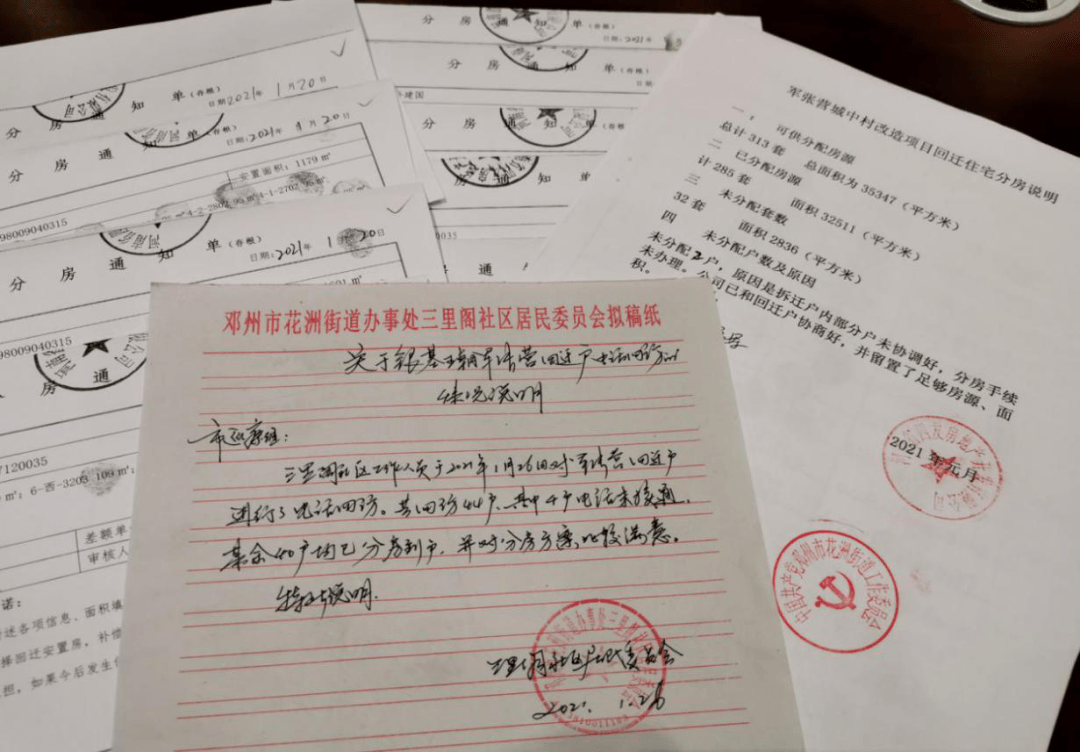 分 房 通 知 单（存根）
日期：2021年 1月20日
分 房 通 知 单（存根）
日期：2021年 1月20日
安置面积：1179 m²
98009040315
分 房 通 知 单（存根）
2021年 1月20日
98009040315
通
7120035
m²；6-西-3203 109 m²；
差额单
审核人
诺：
述各项信息、面积填
择回迁安置房，补偿
担。如果今后发生
通 知 单（存根）
日期：2021年
分
单（存根）
分 房
（存根）
分 房 通 知 单
0035
房 通
军张营城中村改造项目回迁住宅分房说明
一 、 可供分配房源
总计 313 套 总面积为 35347（平方米）
二 已分配房源
计 285 套 面积 32511（平方米）
三 未分配套数
32 套 面积 2836（平方米）
四 未分配户数及原因
未分配 2 户，原因是拆迁户内部分户未协调好，分房手续
未办理。公司已和回迁户协商好，并留置了足够房源、面
积。
2021 年元月
中国共产党邓州市花洲街道工作委员会
邓州市花洲街道办事处三里阁社区居民委员会拟稿纸
关于银基王朝军张营回迁户电话回访的
情况说明
市巡察组：
三里阁社区工作人员于2021年1月26日对军张营回迁户
进行了电话回访。共回访44户，其中4户电话未接通，
其余40户均已分房到户，并对分房方案比较满意。
特此说明.
三里阁社区居民委员会
2021. 1. 26